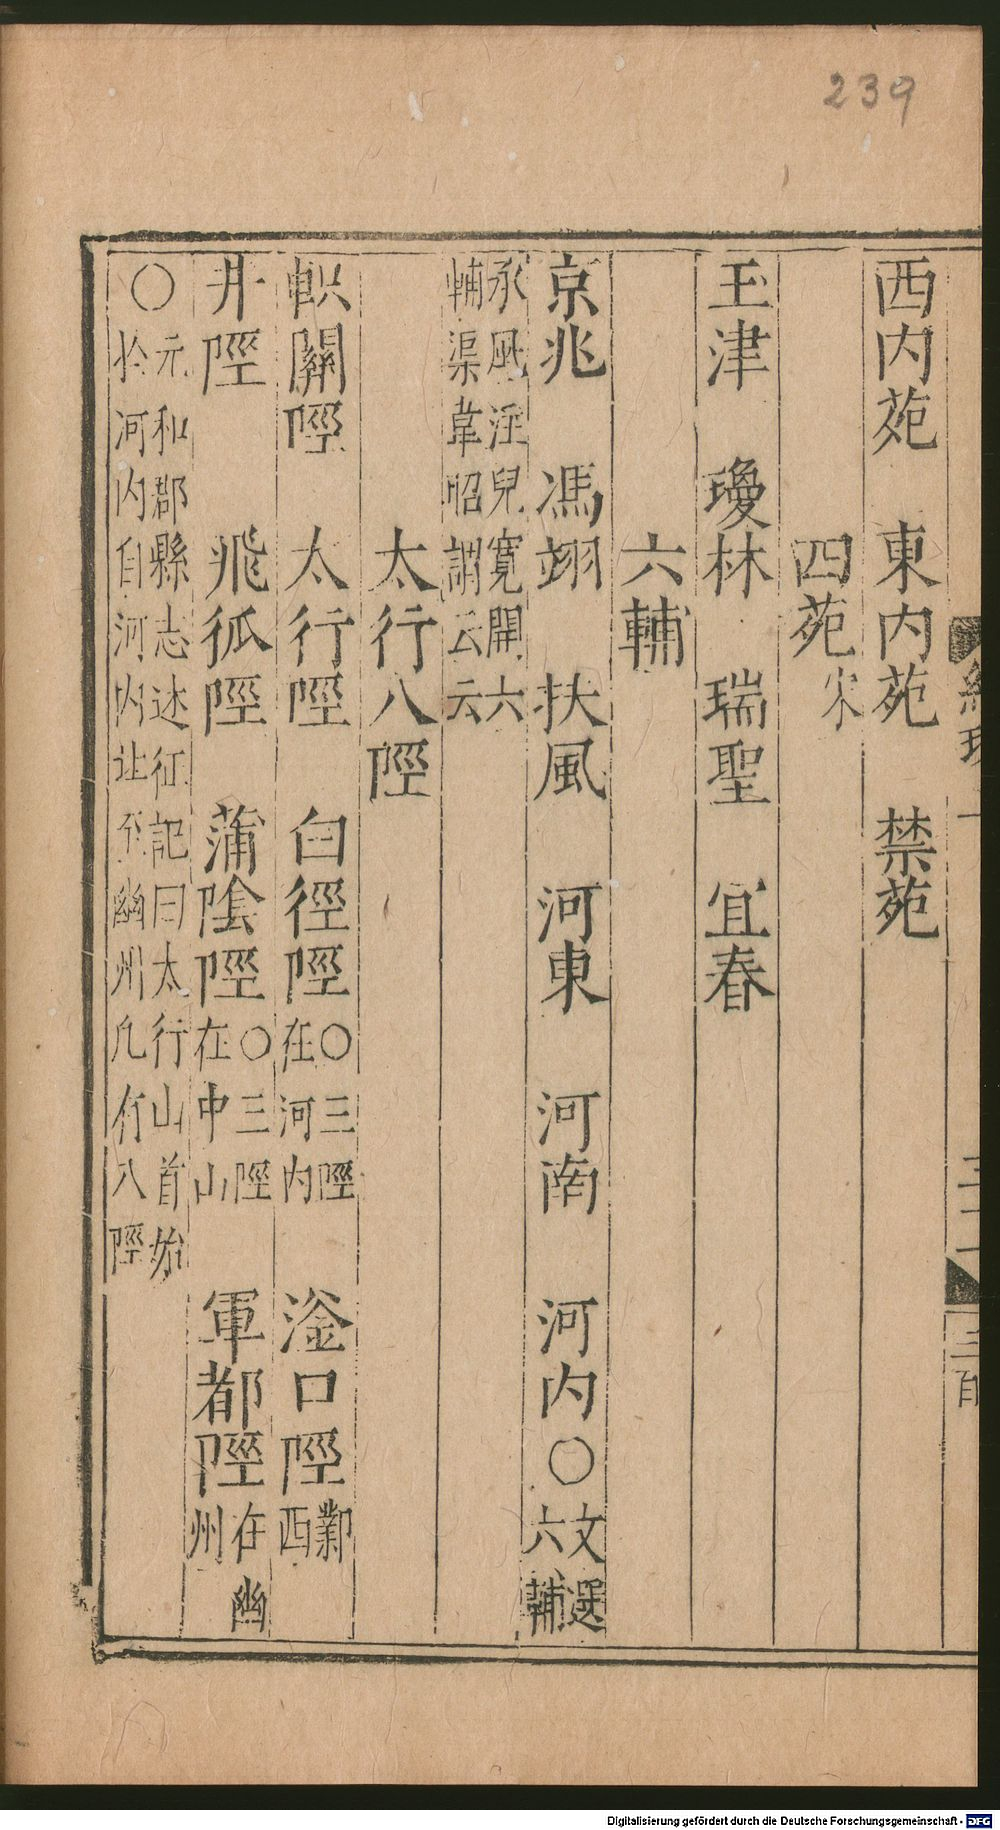 239
西内苑　東内苑　禁苑
四苑宋
玉津　瓊林　瑞聖　宜春
六輔
京兆　馮翊　扶風　河東　河南　河内〇文選六輔
風注兒寬開六
輔渠韋昭謂云云
太行八陘
軹關陘　太行陘　白徑陘〇三陘在河内　滏口陘鄴西
井陘　飛狐陘　蒲陰陘〇三陘在中山　軍都陘在幽州
〇元和郡縣志述征記曰太行山首始
於河内自河内北至幽州凡有八陘
Digitalisierung gefördert durch die Deutsche Forschungsgemeinschaft - DFG